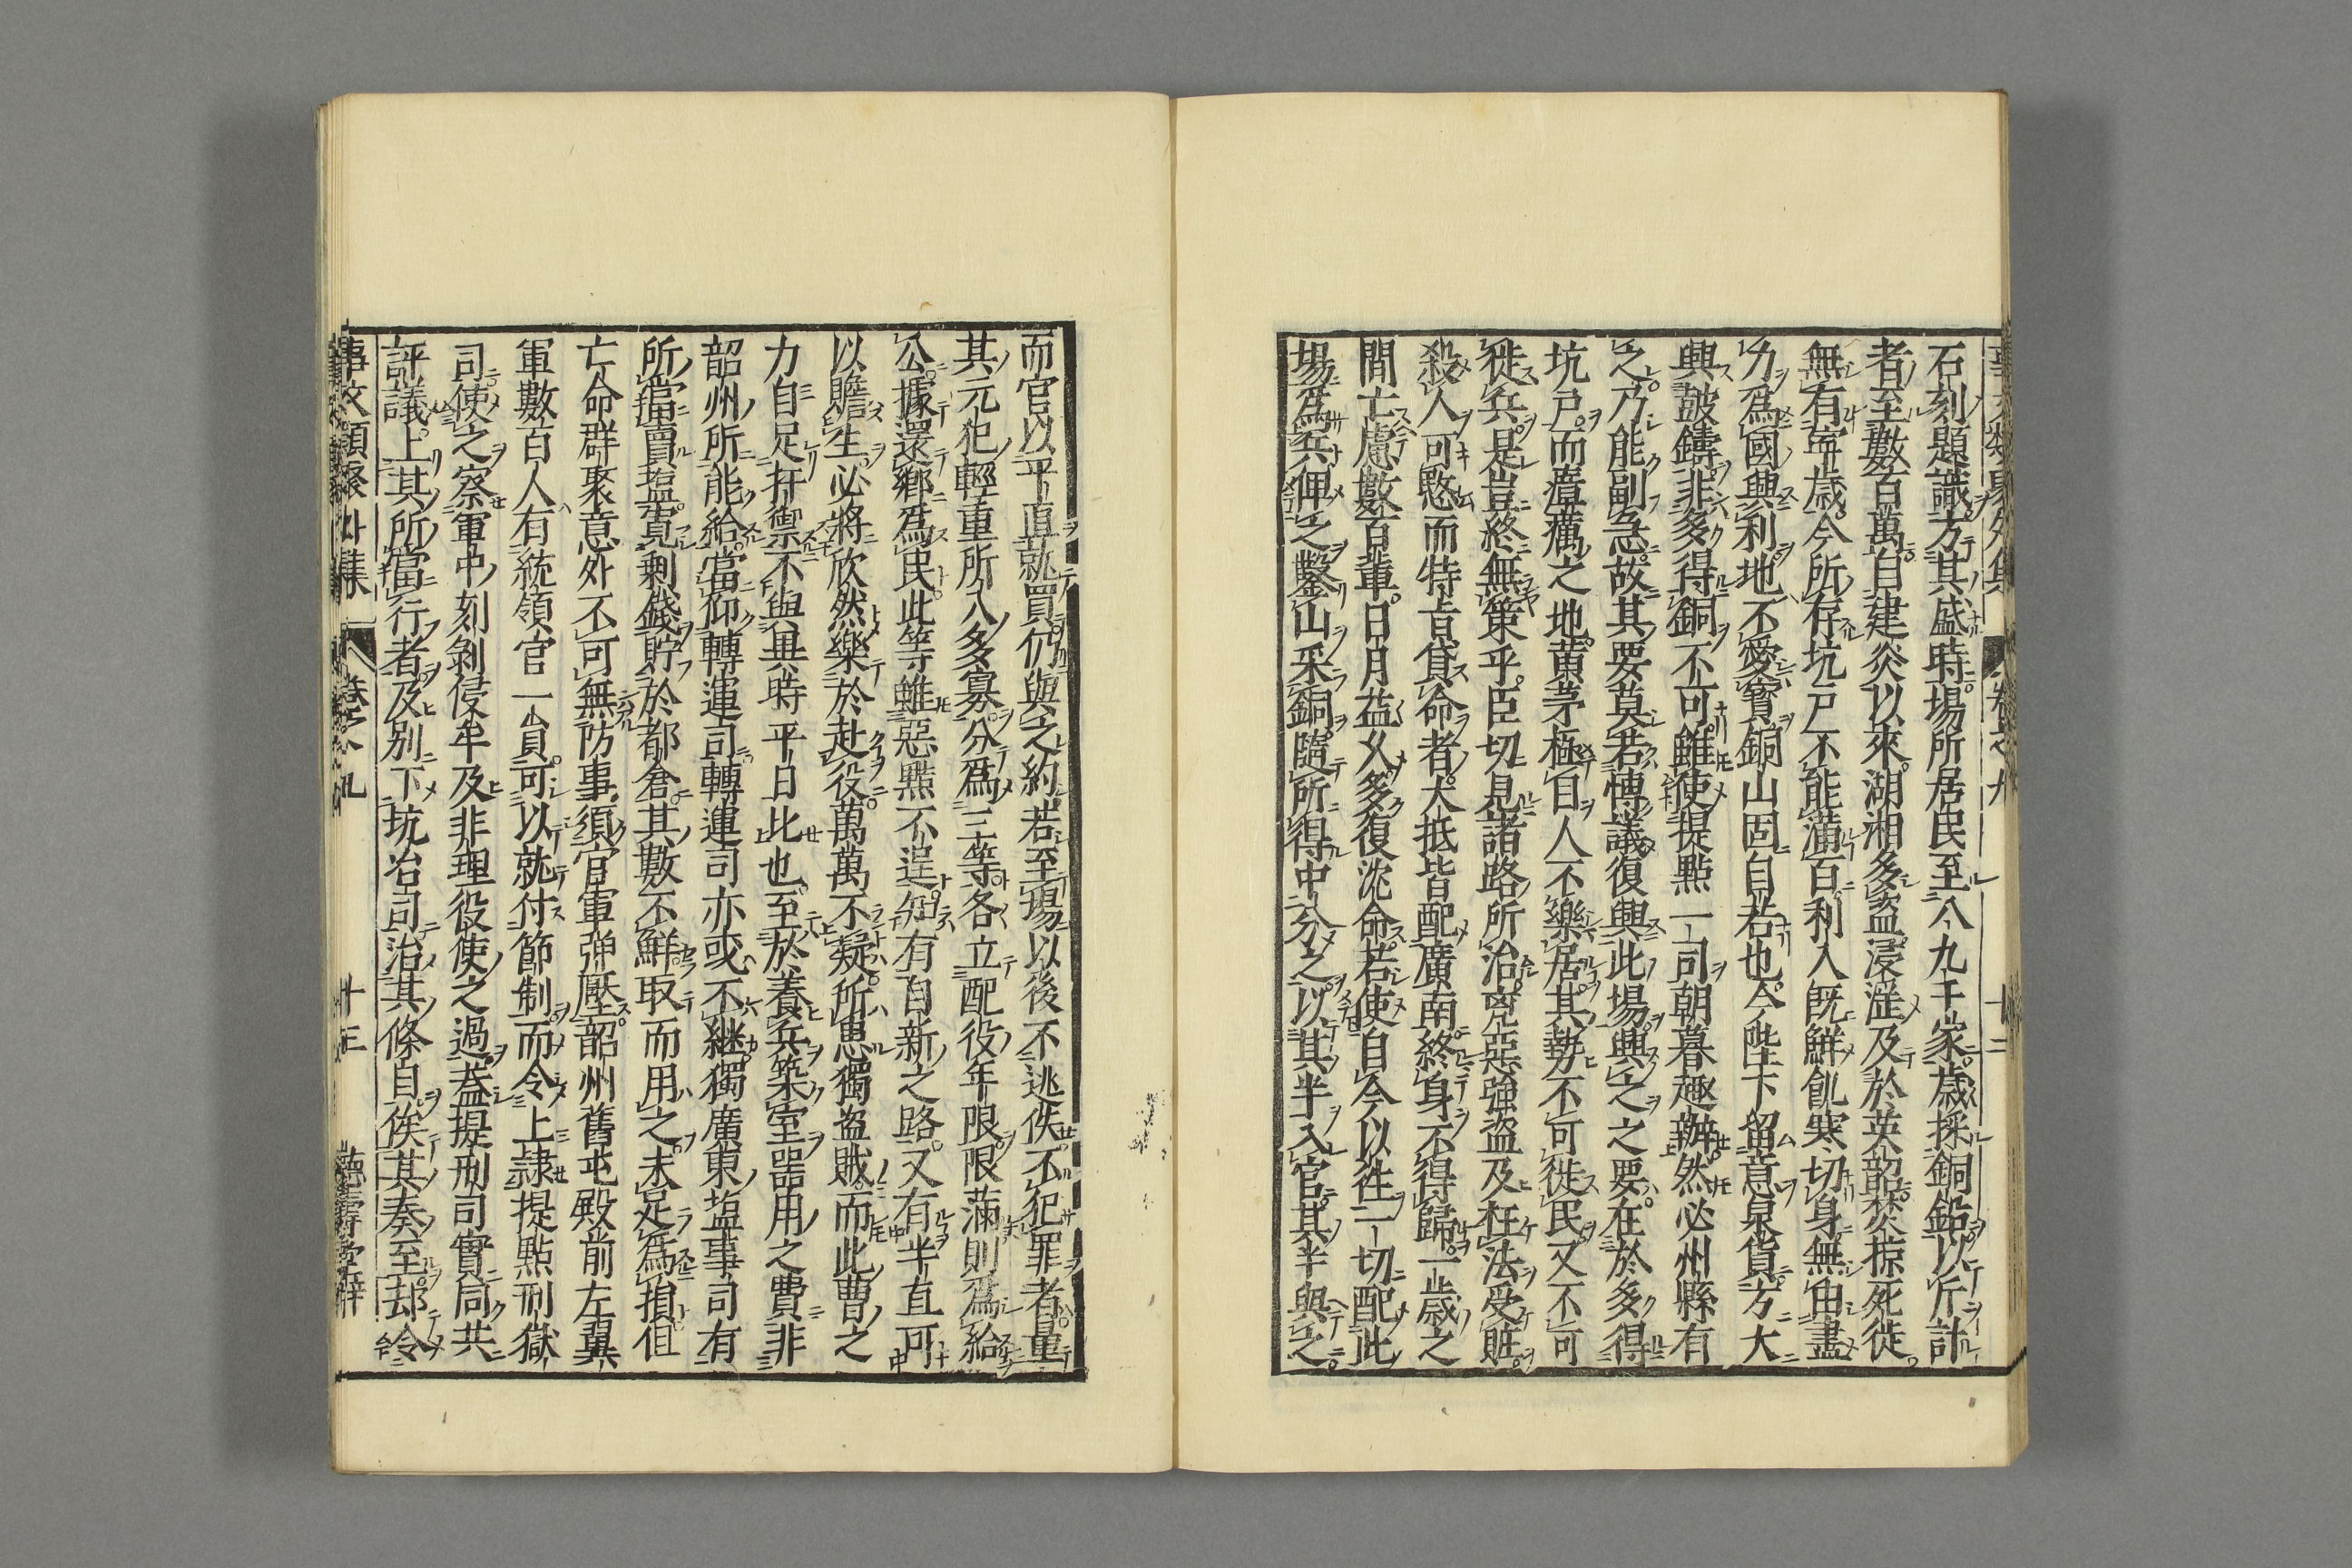 石刻題識方其盛時場所居民至八九千家歳採銅鉛以斤計
者至數百萬自建炎以來湖湘多盗浸滛及於英韶焚掠死徙
無有寧歳今所存坑戸不能滿百利入既鮮飢寒切身無由盡
力爲國興利地不愛寶銅山固自若也今陛下留意泉貨方大
興鼓鑄非多得銅不可雖使提點一司朝暮趣辦然必州縣有
之乃能副急故其要莫若愽議復興此場興之之要在於多得
坑戸而瘴癘之地黄茅極目人不樂居其勢不可徙民又不可
徙兵是豈終無策乎臣切見諸路所治兇惡強盗及枉法受賍
殺人可愍而特旨貸命者大抵皆配廣南終身不得歸一歳之
間亡慮數百輩日月益久多復沈命若使自今以徃一切配此
場爲兵俾之鑿山采銅隨所得中分之以其半入官其半與之
而官以平直就買仍與之約若至場以後不逃佚不犯罪者量
其元犯輕重所入多寡分爲三等各立配役年限限滿則爲給
公據還郷爲民此等雖惡黠不逞知有自新之路又有半直可
以贍生必將欣然樂於赴役萬萬不疑所患獨盗賊而此曹之
力自足扞禦不與異時平日比也至於養兵築室噐用之費非
韶州所能給當仰轉運司轉運司亦或不継獨廣東塩事司有
所當賣塩寛剰錢貯於都倉其數不鮮取而用之未足爲損但
亡命群聚意外不可無防事須官軍弾壓韶州舊屯殿前左翼
軍數百人有統領官一員可以就付節制而令上隷提點刑獄
司使之察軍中刻剝侵牟及非理役使之過蓋提刑司實同共
評議上其所當行者及别下坑冶司治其條自俟其奏至却令
事文類聚外集 卷之九 十三